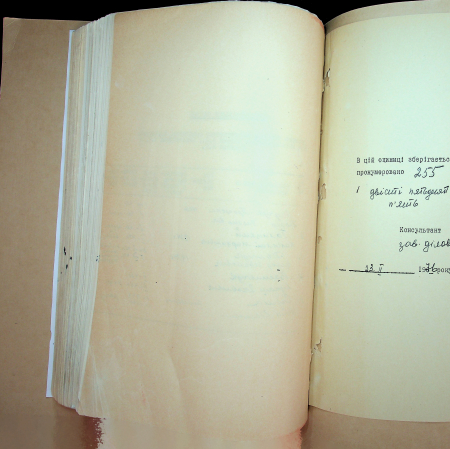 В цій одиниці зберігаєтьс
пронумеровано 255
/ двісті пятдесят
п'ять
Консультант
зав. ділов
" 23. II 1976 року